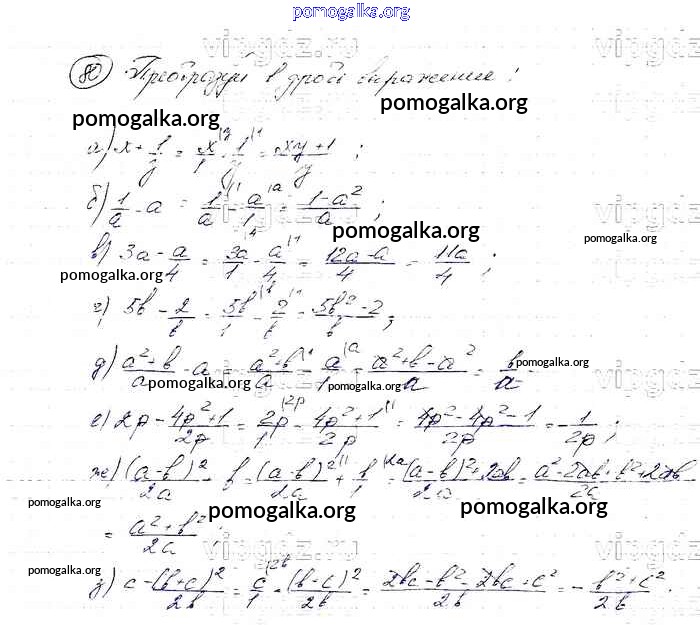 pomogalka.org
80 Преобразуй в дробь выражение:
pomogalka.org
pomogalka.org
а) x + 1/y = x/1 + 1/y = xy+1/y ;
б) 1/a - a = 1/a - a/1 = 1-a²/a ;
pomogalka.org
pomogalka.org
в) 3a - a/4 = 3a/1 - a/4 = 12a-a/4 = 11a/4 ;
pomogalka.org
г) 5b - 2/b = 5b/1 - 2/b = 5b²-2/b ;
д) a²+b/a - a = a²+b/a - a/1 = a²+b-a²/a = b/a
pomogalka.org
pomogalka.org
pomogalka.org
е) 2p - 4p²+1/2p = 2p/1 - 4p²+1/2p = 4p²-4p²-1/2p = -1/2p ;
ж) (a-b)²/2a + b = (a-b)²/2a + b/1 = (a-b)²+2ab/2a = a²-2ab+b²+2ab/2a
pomogalka.org
pomogalka.org
pomogalka.org
= a²+b²/2a ;
pomogalka.org
з) c - (b+c)²/2b = c/1 - (b+c)²/2b = 2bc-b²-2bc-c²/2b = - b²+c²/2b
pomogalka.org